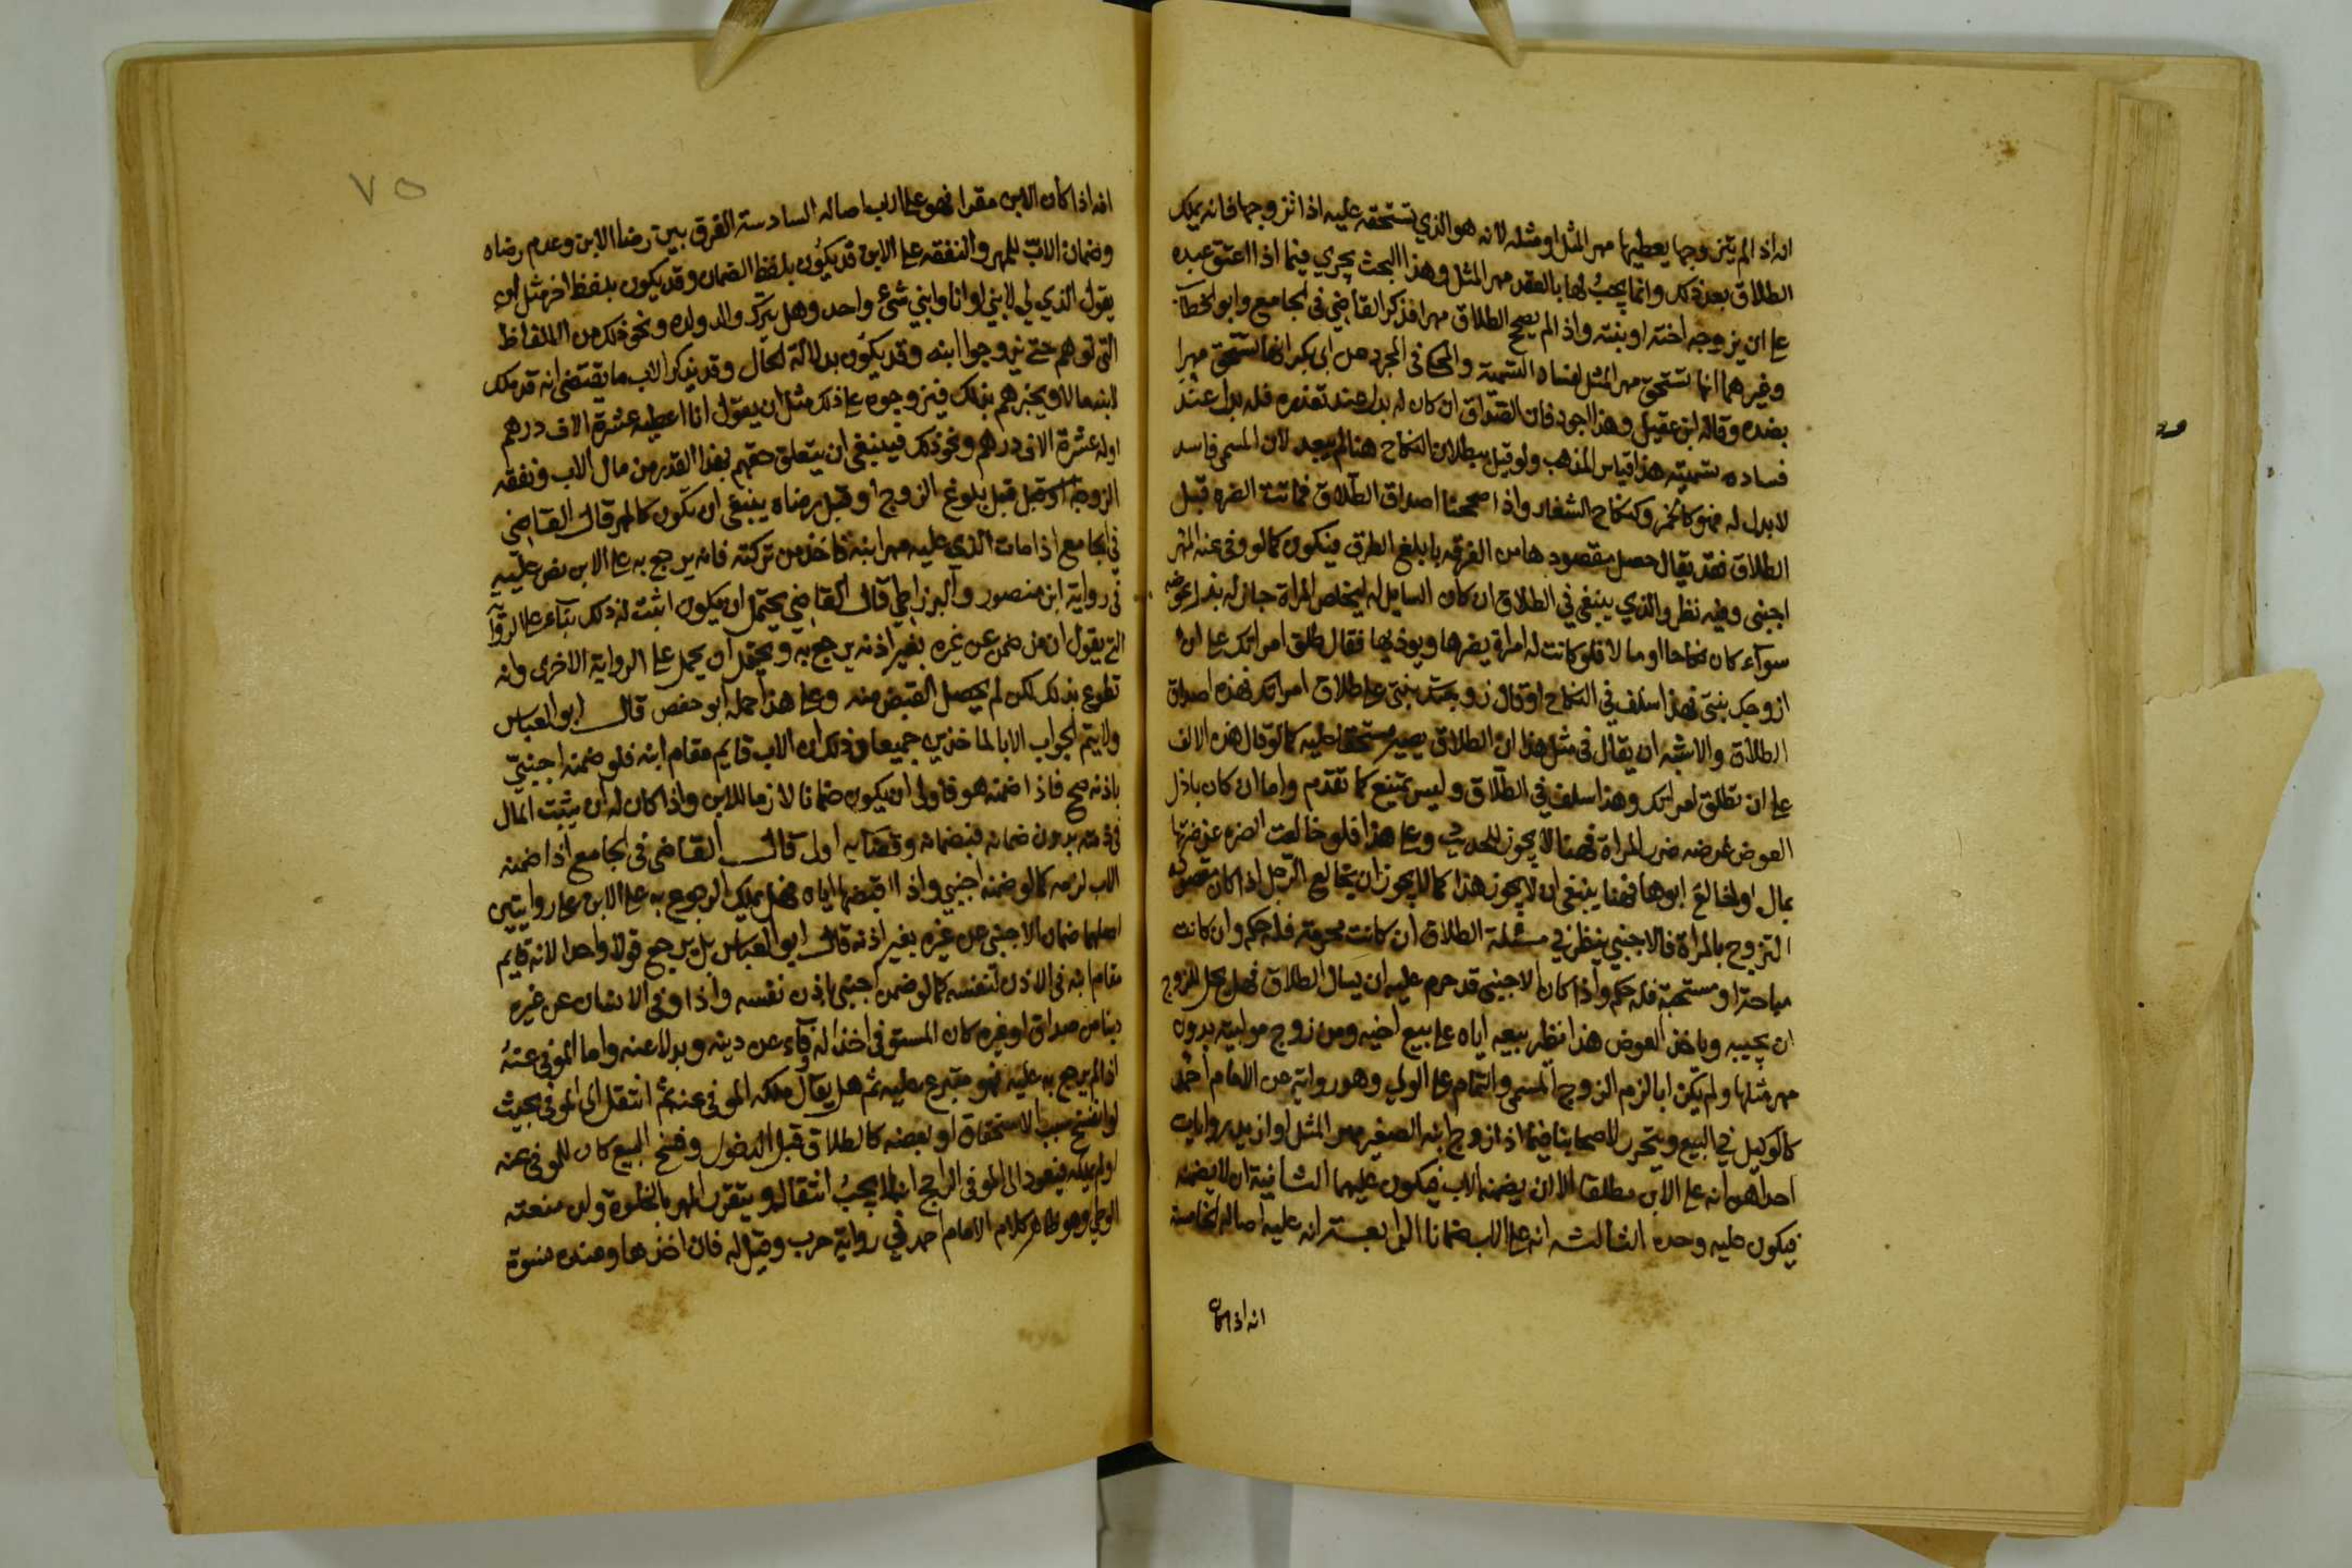 انه اذا لم يتزوجها يعطيها مهر المثل او مثله لانه هو الذي تستحقه عليه اذا تزوجها فانه يملك
الطلاق بعد ذلك وانما يجب لها بالعقد مهر المثل وهذا البحث يجري فيما اذا اعتق عبده
على ان يزوجه اخته او بنته واذا لم يصح الطلاق مهرا فذكر القاضي في الجامع وابو الخطاب
وغيرهما انها تستحق مهر المثل لفساد التسمية والمحكى في المجرد عن ابى بكر انها تستحق مهر
بضده وقاله ابن عقيل وهذا اجود فان الصداق ان كان له بدل عند تعذره فله بدل عند
فساده تسميته هذا قياس المذهب ولو قيل ببطلان النكاح هنا لم يبعد لان المسمى فاسد
لا بدل له فهو كالخمر وكنكاح الشغار واذا صححنا اصداق الطلاق فماتت الضره قبل
الطلاق فقد يقال حصل مقصودها من الفرقه بابلغ الطرق فيكون كما لو وفى عنه المهر
اجنبى وفيه نظر والذي ينبغي في الطلاق ان كان السايل له ليخلص المراة جاز له بذل عوضه
سوآء كان نكاحا او مالا فلو كانت له امراة يضرها ويوذيها فقال طلق امراتك على ان
ازوجك بنتى فهذا سلف في النكاح او قال زوجتك بنتى على طلاق امراتك فهذه اصداق
الطلاق والاشبه ان يقال في مثل هذا ان الطلاق يصير مستحقا عليه كما لو قال هذه الالف
على ان تطلق امراتك وهذا سلف في الطلاق وليس بممتنع كما تقدم واما ان كان باذل
العوض غرضه ضرر المراة فهنا لا يجوز للحديث وعلى هذا فلو خالعت الضره عن ضرتها
بمال او خالع ابوها فهنا ينبغى ان لا يجوز هذا كما لا يجوز ان يخالع الرجل اذا كان مقصوده
التزوج بالمراة فالاجنبي ينظر في مسئلة الطلاق ان كانت محرمة فله حكم وان كانت
مباحة او مستحبة فله حكم واذا كان الاجنبى قد حرم عليه ان يسال الطلاق فهل يحل للزوج
ان يجيبه وياخذ العوض هذا نظير بيعه اياه على بيع اخيه ومن زوج موليته بدون
مهر مثلها ولم يكن ابا لزم الزوج المسمى والتمام على الولي وهو رواية عن الامام احمد
كالوكيل في البيع ويتحرر لاصحابنا فيما اذا زوج ابنه الصغير بمهر المثل او ازيد روايات
احداهن انه على الابن مطلقا الا ان يضمنه الاب فيكون عليهما الثانية ان لا يضمنه
فيكون عليه وحده الثالثه انه على الاب ضمانا الرابعة انه عليه اصاله الخامسة
انه اذا كان
٧٥
انه اذا كان الابن مقرا فهو على الاب اصاله السادسة الفرق بين رضا الابن وعدم رضاه
وضمان الاب للمهر والنفقه على الابن قد يكون بلفظ الضمان وقد يكون بلفظ اخر مثل ان
يقول الذي لي لابني او انا وابني شيء واحد وهل يترك والد ولده ونحو ذلك من الالفاظ
التى توهم حتى يزوجوا ابنه وقد يكون بدلالة الحال وقد يذكر الاب ما يقتضى انه قد ملك
ابنه مالا ويخبرهم بذلك فيزوجوه على ذلك مثل ان يقول انا اعطيه عشرة الاف درهم
او له عشرة الاف درهم ونحو ذلك فينبغى ان يتعلق حقهم بهذا القدر من مال الاب ونفقة
الزوجة قبل بلوغ الزوج او قبل رضاه ينبغى ان تكون كالمهر قال القاضى
في الجامع اذا مات الذي عليه مهر ابنه فاخذ من تركته فانه يرجع به على الابن نص عليه
في رواية ابن منصور والبرزاطي قال القاضي يحتمل ان يكون اثبت له ذلك بناء على الروآ
التى يقول ان من ضمن عن غيره بغير اذنه يرجع به ويحتمل ان يحمل على الرواية الاخرى وانه
تطوع بذلك لكن لم يحصل القبض منه وعلى هذا حمله ابو حفص قال ابو العباس
ولا يتم الجواب الا بالماخذين جميعا وذلك ان الاب قايم مقام ابنه فلو ضمنه اجنبي
باذنه صح فاذا ضمنه هو فاولى ان يكون ضمانا لازما للابن واذا كان له ان يثبت المال
في ذمته بدون ضمانه فبضمانه وقضايه اولى قال القاضى في الجامع اذا ضمنه
الاب لزمه كما لو ضمنه اجنبي واذا اقبضها اياه فهل يملك الرجوع به على الابن على روايتين
اصلهما ضمان الاجنبى عن غيره بغير اذنه قال ابو العباس بل يرجع قولا واحدا لانه قايم
مقام ابنه في الاذن لنفسه كما لو ضمن اجنبى باذن نفسه واذا وفى الانسان عن غيره
دينا من صداق او غيره كان المستوفى اخذا له وفآء عن دينه وبدلا عنه واما الموفى عنه
اذا لم يرجع به عليه فهو متبرع عليه ثم هل يقال ملكه الموفى عنه ثم انتقل الى الموفى بحيث
لو انفسخ سبب الاستحقاق او بعضه كالطلاق قبل الدخول وفسخ البيع كان للموفى عنه
او لم يملكه فيعود الى الموفى الراجح انه لا يجب انتقاله ويتقرر المهر بالخلوة وان منعته
الوطي وهو ظاهر كلام الامام احمد في رواية حرب وقيل له فان اخذها وعنده نسوة